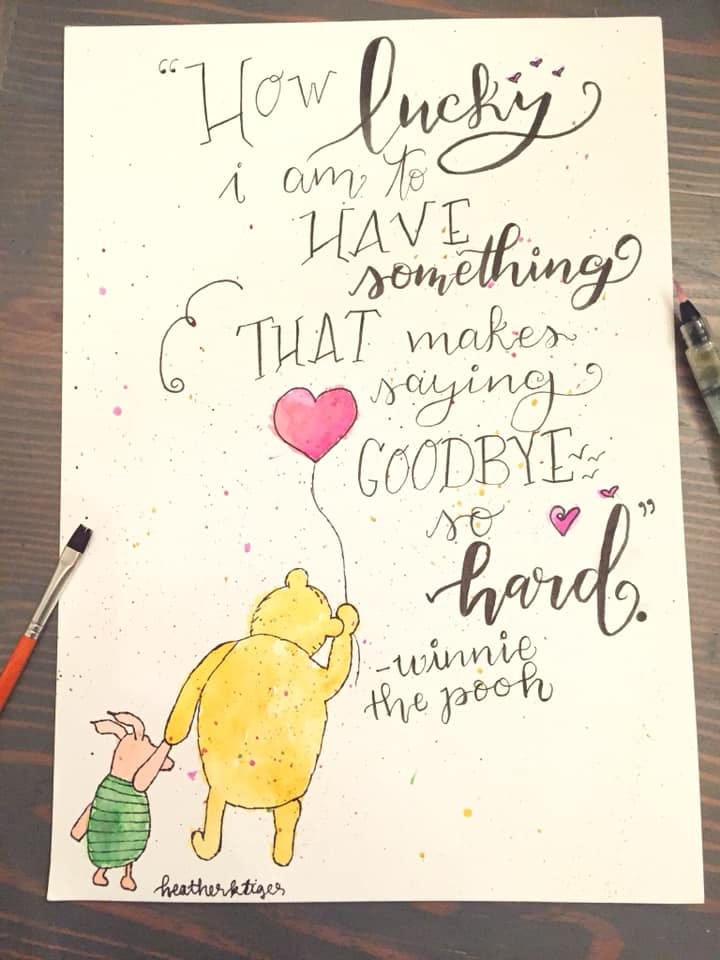 "How lucky
i am to
HAVE
something
THAT makes
saying
GOODBYE
so
hard."
-winnie
the pooh
heatherktiger